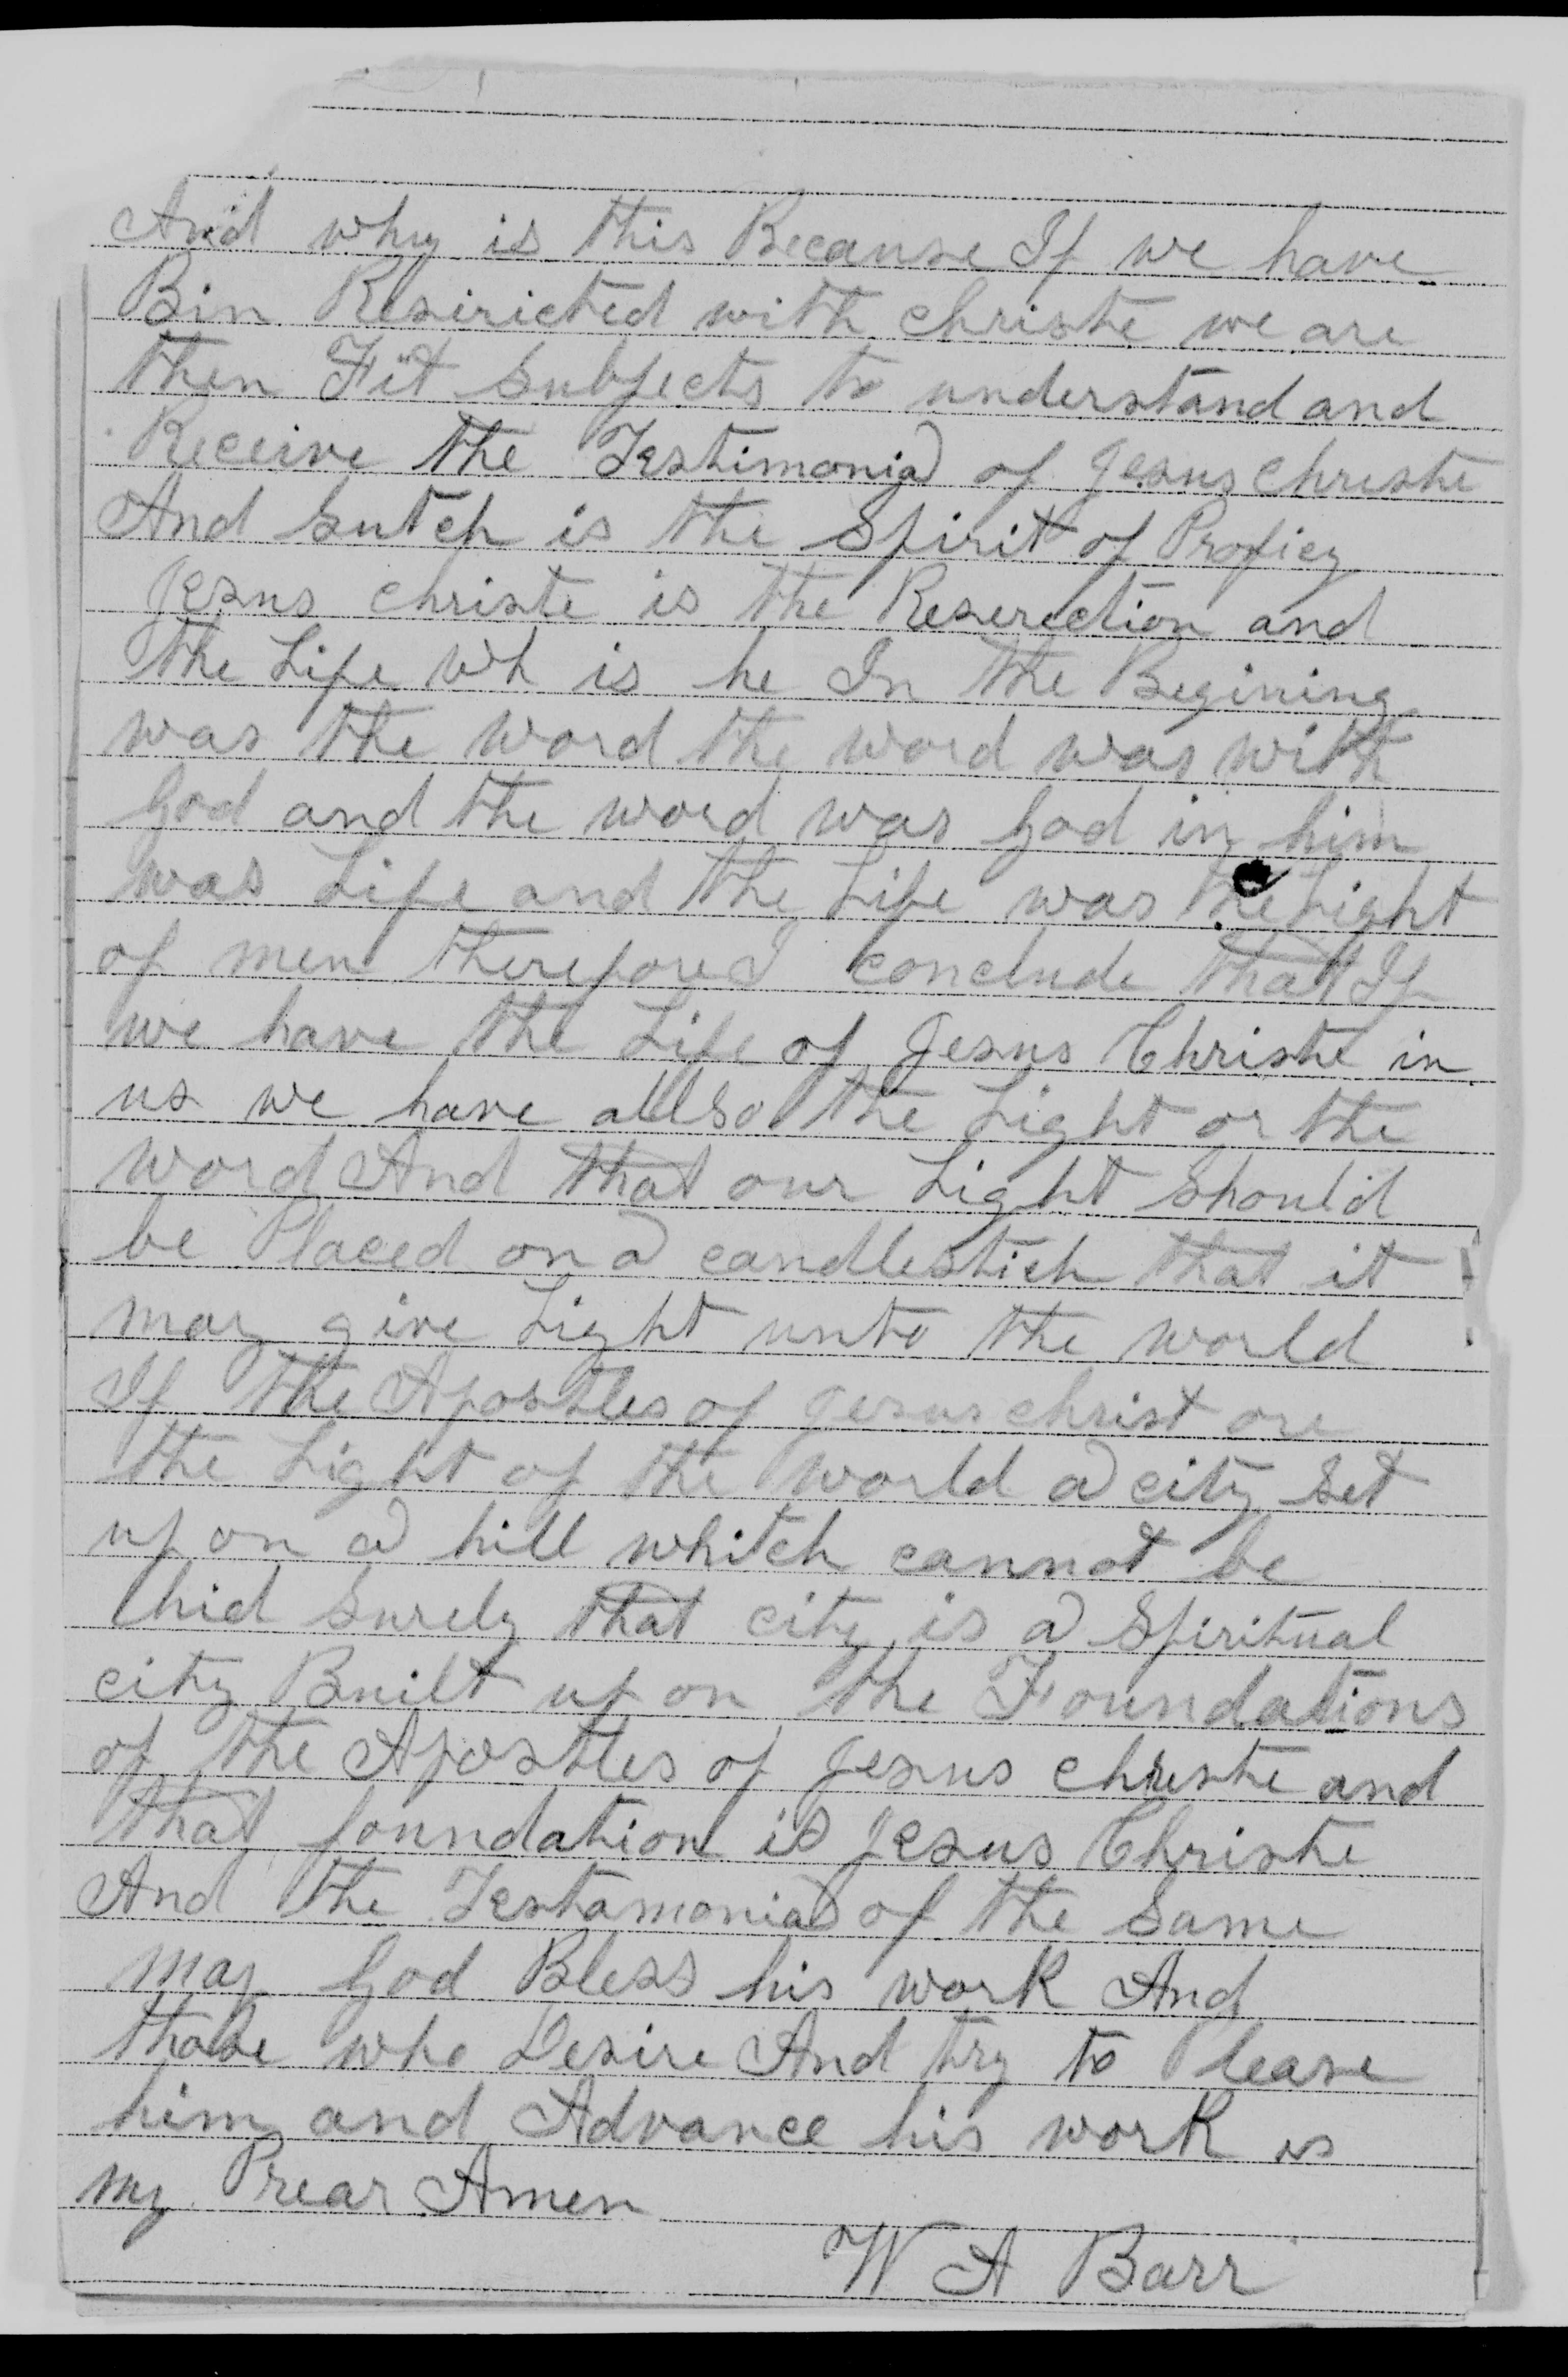 And why is this Because If we have
Bin Resiricted with christe we are
then Fit subjects to understand and
Receive the Testimonia of Jesus christe
And sutch is the Spirit of Proficy
Jesus christe is the Reserection and
the Life Wh is he In the Begining
was the word the word was with
God and the word was God in him
was Life and the Life was the Light
of men therefore I conclude that If
we have the Life of Jesus Christe in
us we have allso the Light or the
word And that our Light should
be Placed on a candlestick that it
may give Light unto the world
If the Apostles of Jesus christ are
the Light of the world a city set
up on a hill whitch cannot be
hid surely that city is a Spiritual
city Built up on the Foundations
of the Apostles of Jesus christe and
that foundation is Jesus Christe
And the Testamonia of the same
may God Bless his work And
those who Desire And try to Please
him and Advance his work is
my Prear Amen
W A Barr